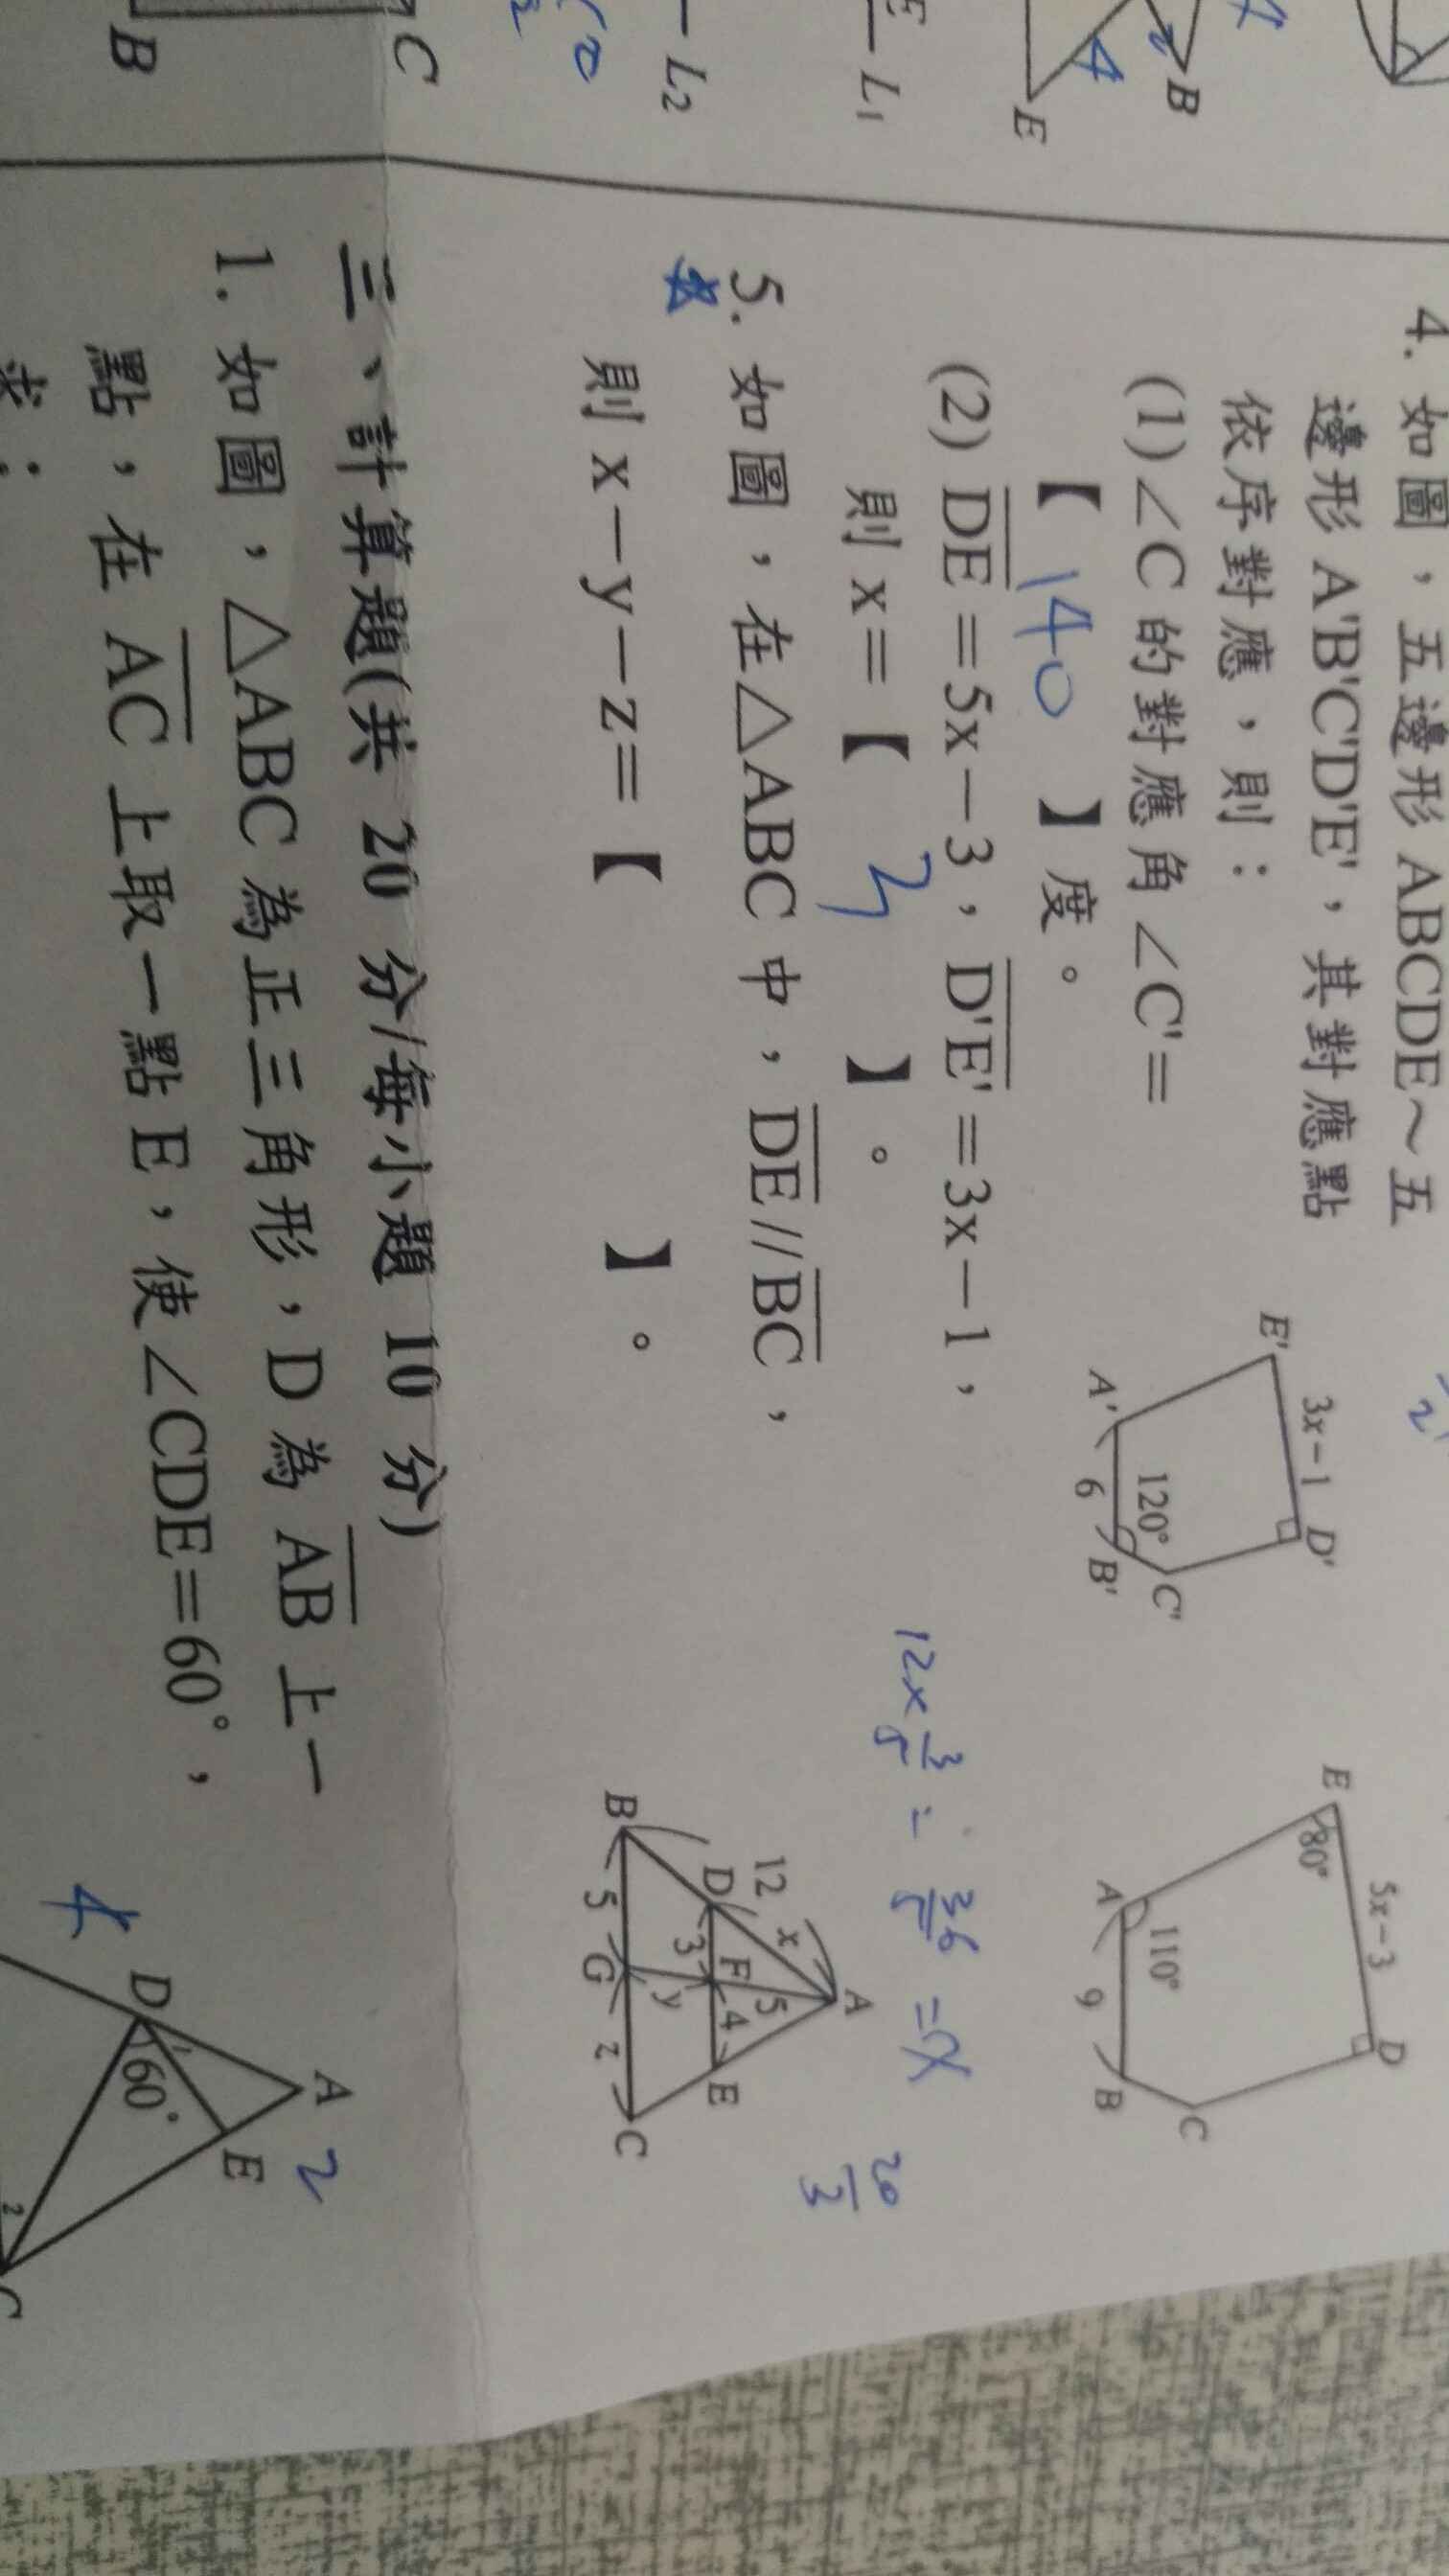 4. 如圖，五邊形 ABCDE～五
邊形 A'B'C'D'E'，其對應點
依序對應，則：
(1)∠C 的對應角∠C'=
【 140 】度。
(2) DE=5x－3，D'E'=3x－1，
則 x=【 】。
E' 3x－1 D'
A' 6 B' 120° C'
E 80° 5x－3 D
A 110° 9 B C
5. 如圖，在△ABC 中，DE//BC，
則 x－y－z=【 】。
12× 3/5 = 36/5 =x
20/3
A
12 x 5
D 3 F 4 E
y
B 5 G z C
三、計算題(共 20 分/每小題 10 分)
1. 如圖，△ABC 為正三角形，D 為 AB 上一
點，在 AC 上取一點 E，使∠CDE=60°，
求：
A 2
D 60° E
4
2
C
B
4
2
E
L1
L2
C
B